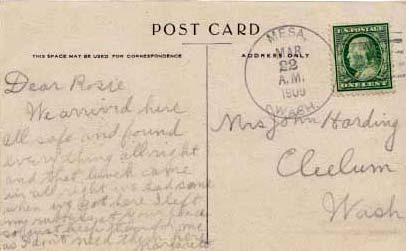 POST CARD
THIS SPACE MAY BE USED FOR CORRESPONDENCE
ADDRESS ONLY
MESA,
MAR
22
A.M.
1909
WASH.
U.S. POSTAGE
ONE CENT
Dear Rosie
We arrived here
all safe and found
everything allright
and that lunch came
in all right we had some
when we got here I left
my rubbers at your place
so just keep them for me
as I don't need them
Margarete
Mrs John Harding
Cleelum
Wash